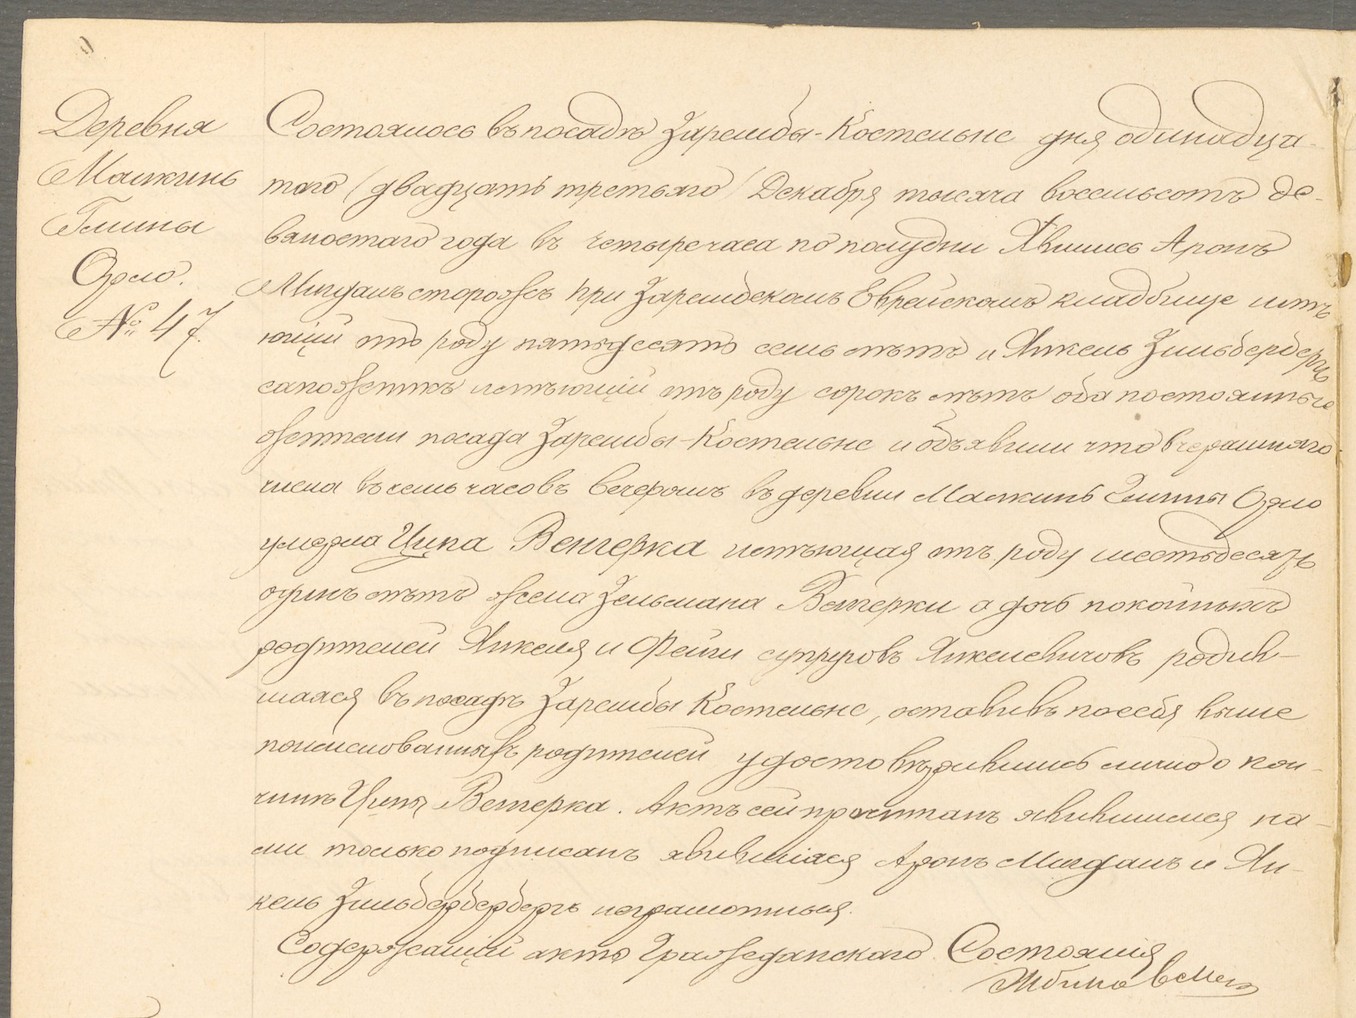 Деревня
Малкинь
Глины
Орло.
№ 47.
Состоялось въ посадѣ Зарембы-Костельне дня одинадца-
того (двадцать третьяго) Декабря тысяча восемьсотъ де-
вяностаго года въ четыре часа по полудни Явились Аронъ
Мигдалъ сторожъ при Зарембскомъ Еврейскомъ кладбище имѣ-
ющій отъ роду пятьдесятъ семь лѣтъ и Янкель Зильбербергъ
сапожникъ имѣющій отъ роду сорокъ лѣтъ оба постоянные
жители посада Зарембы-Костельне и объявили что вчерашняго
числа въ семь часовъ вечеромъ въ деревни Малкинь Глины Орло
умерла Ципа Венгерка имѣющая отъ роду шестьдесятъ
одинъ лѣтъ жена Зельмана Венгерки а дочь покойныхъ
родителей Янкеля и Фейги супруговъ Янкелевичовъ родив-
шаяся въ посадѣ Зарембы Костельне, оставивъ по себѣ выше
поименованныхъ родителей удостовѣрившись лично о кон-
чинѣ Ципы Венгерка. Актъ сей прочитанъ явившимися на-
ми только подписанъ явившіяся Аронъ Мигдалъ и Ян-
кель Зильберберберъ неграмотныя.
Содержащій актъ Гражданскаго Состоянія